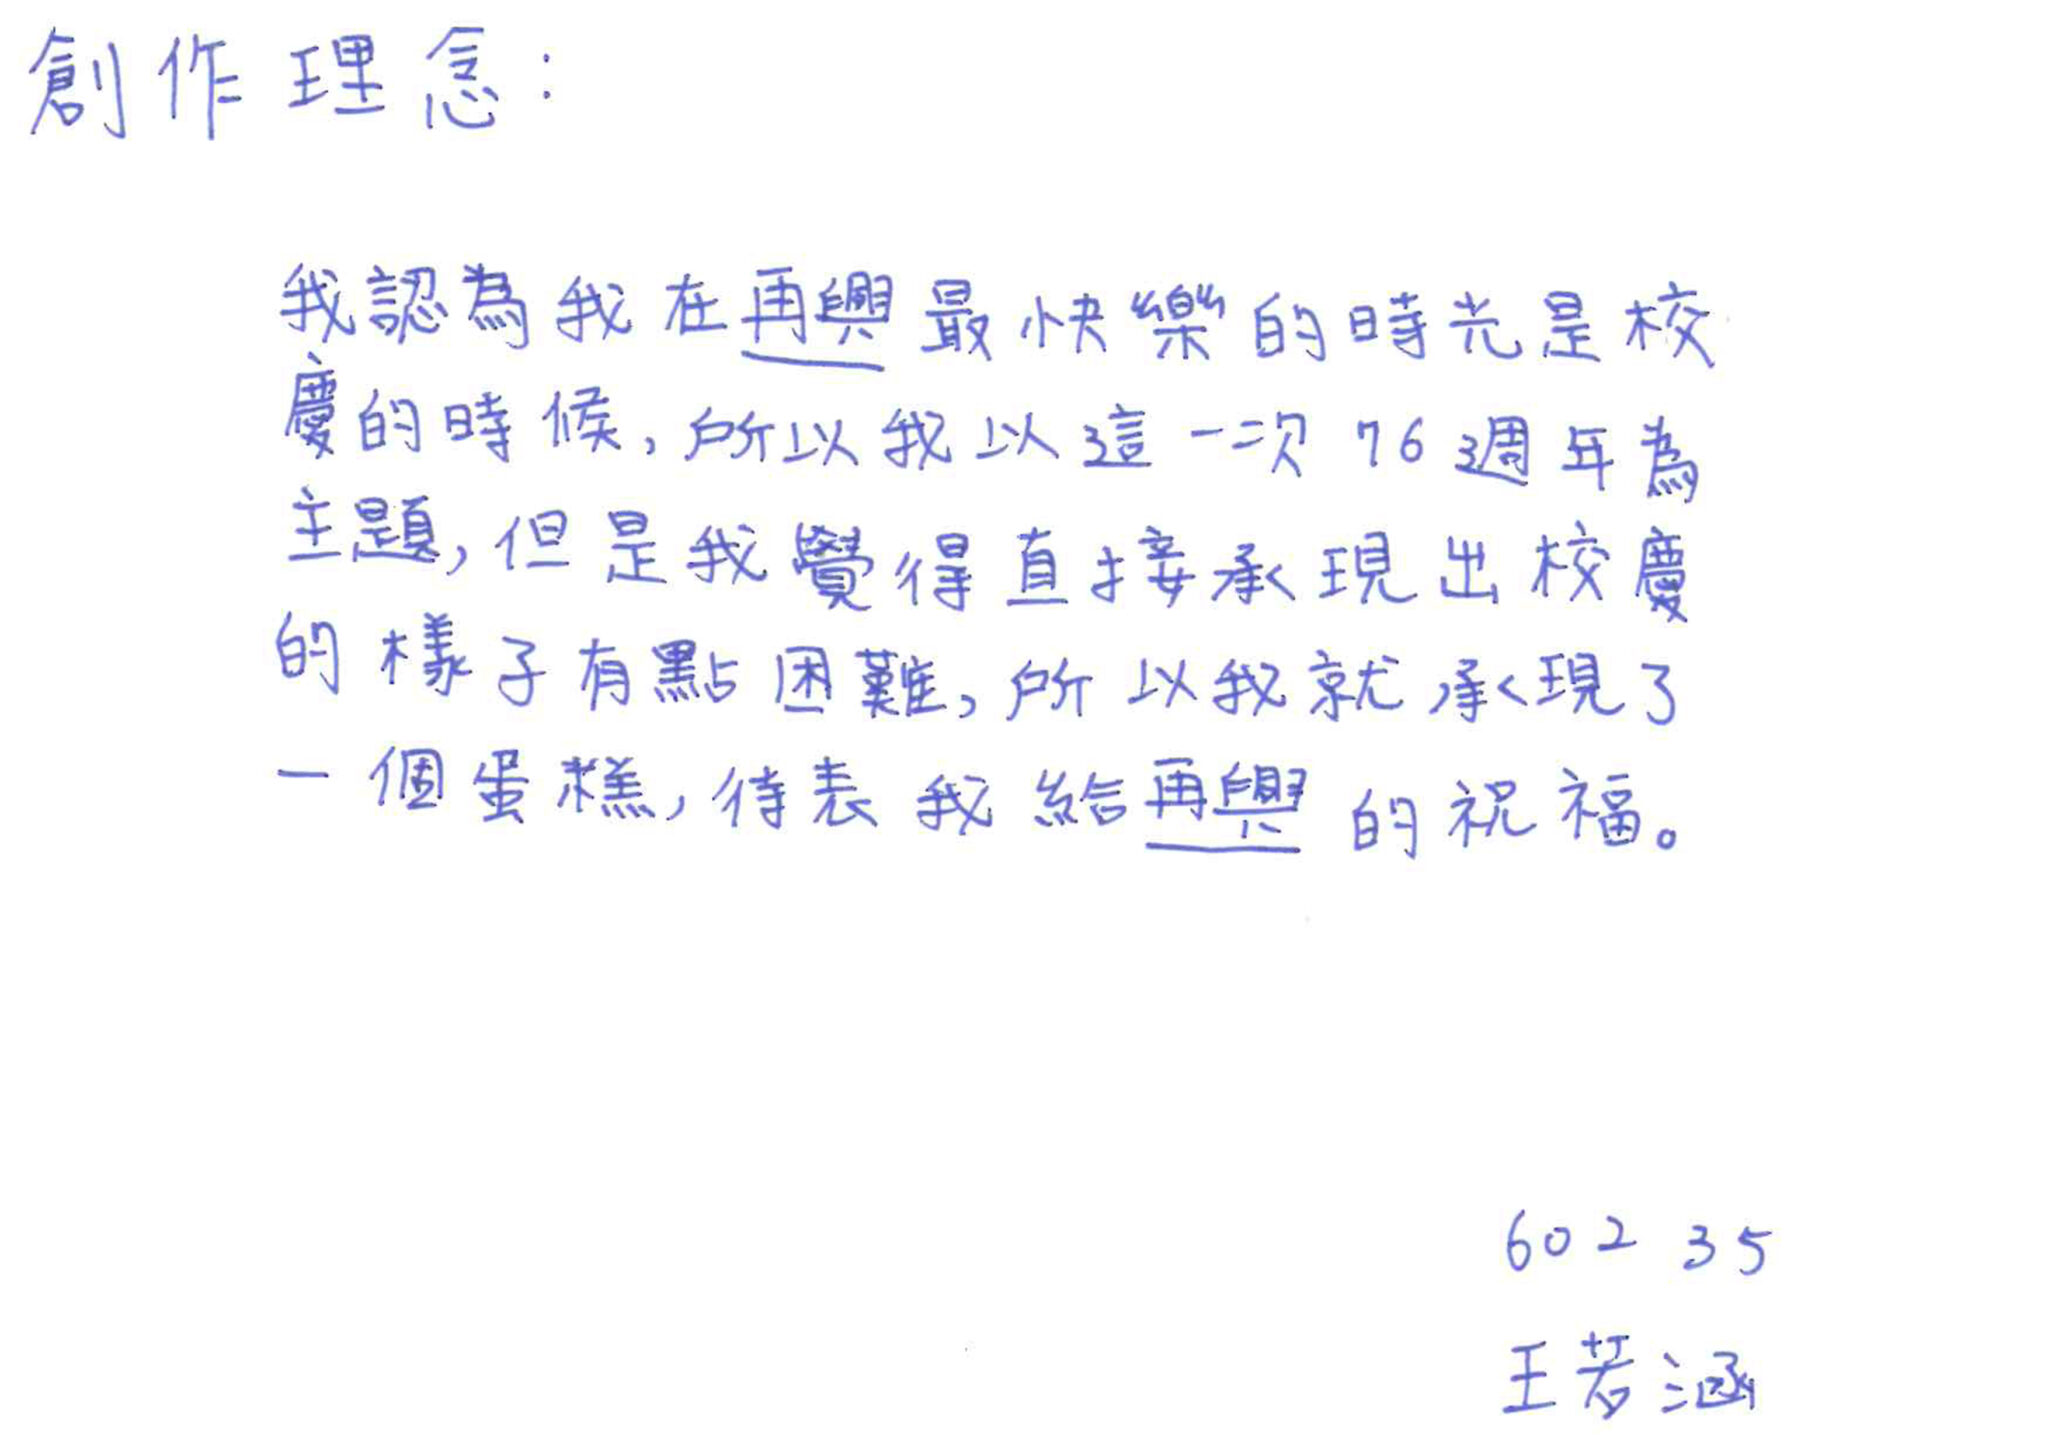 創作理念：
我認為我在再興最快樂的時光是校
慶的時候，所以我以這一次76週年為
主題，但是我覺得直接承現出校慶
的樣子有點困難，所以我就承現了
一個蛋糕，待表我給再興的祝福。
602 35
王若涵